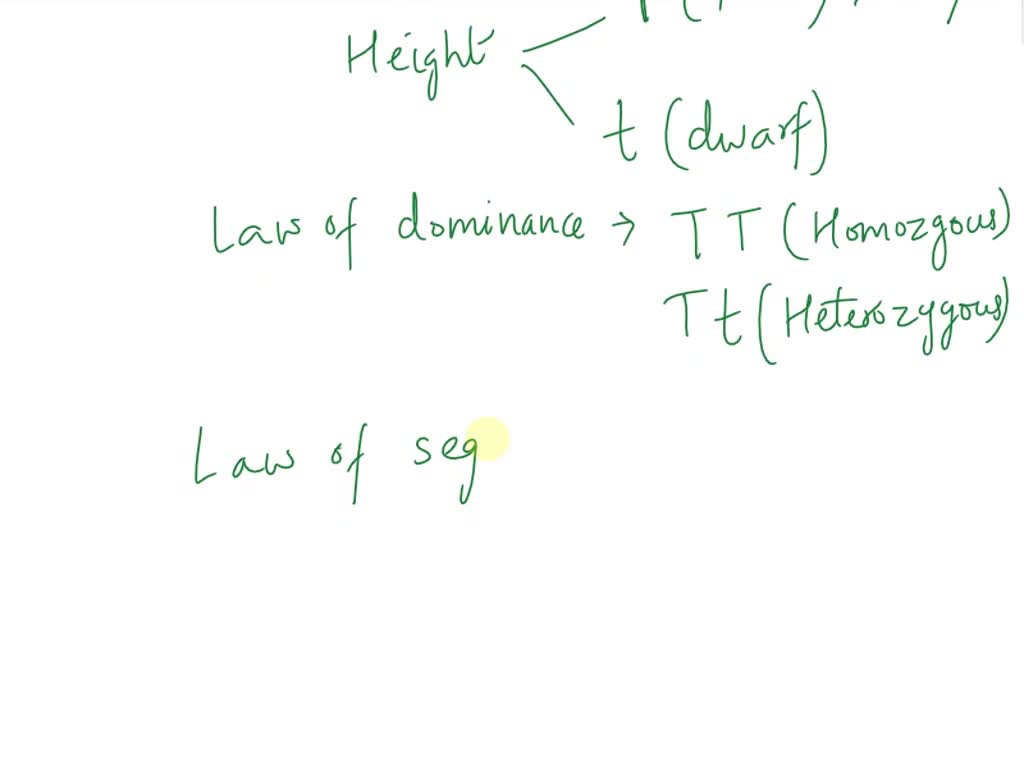 Height
t (dwarf)
Law of dominance → TT (Homozgous)
Tt (Heterozygous)
Law of seg